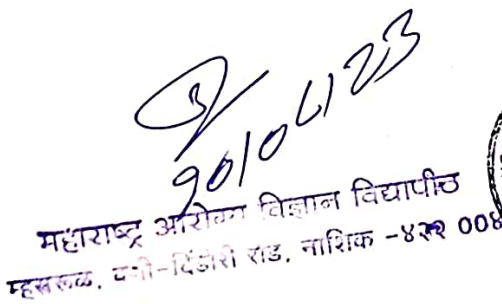 महाराष्ट्र आरोग्य विज्ञान विद्यापीठ
म्हसरुळ, वणी-दिंडोरी रोड, नाशिक -४२२ 00४